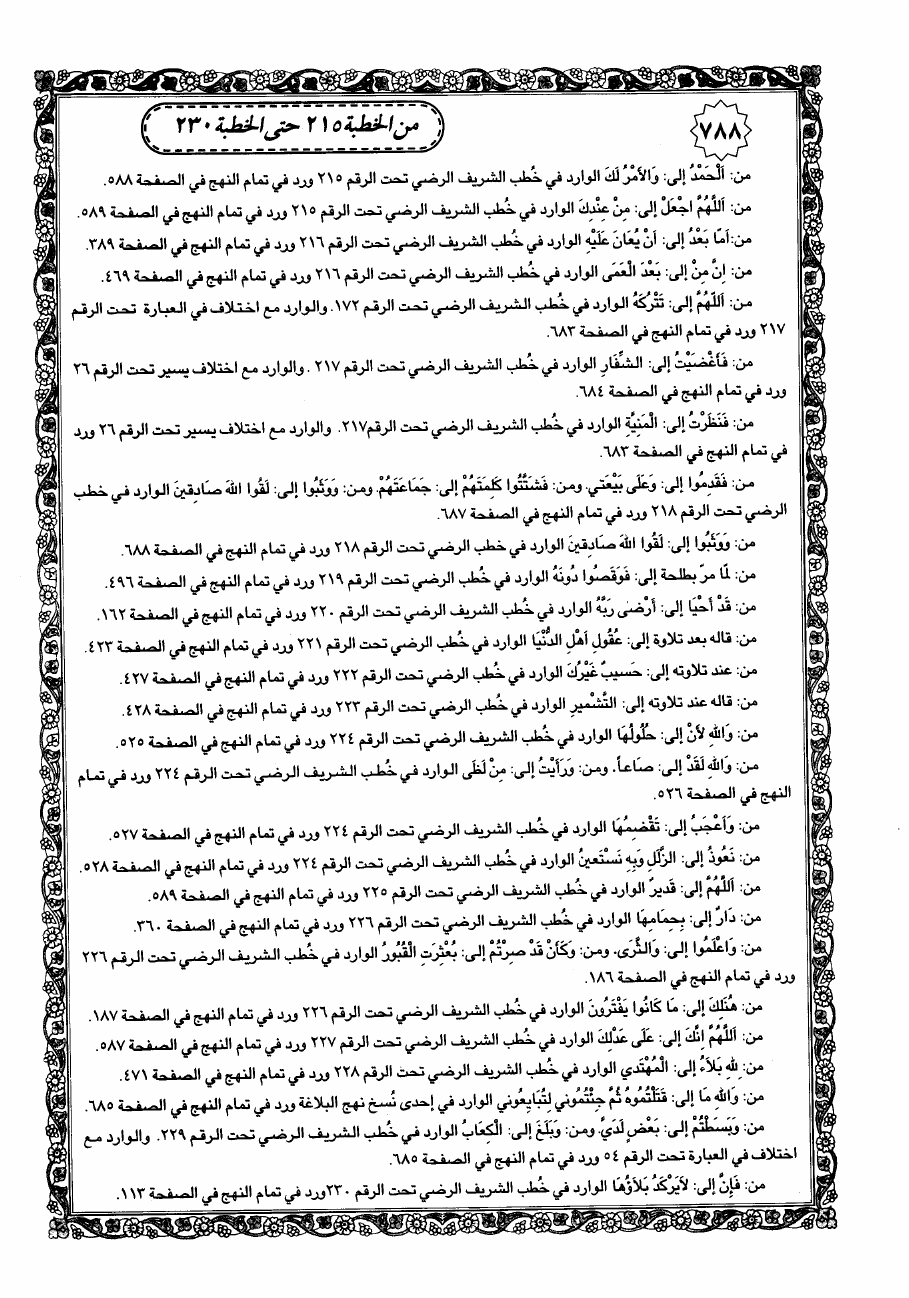 ٧٨٨
من الخطبة ٢١٥ حتى الخطبة ٢٣٠
من: اَلْحَمْدُ إلى: وَالأَمْرُ لَكَ الوارد في خُطب الشريف الرضي تحت الرقم ٢١٥ ورد في تمام النهج في الصفحة ٥٨٨.
من: اَللَّهُمَّ اجْعَلْ إلى: مِنْ عِنْدِكَ الوارد في خُطب الشريف الرضي تحت الرقم ٢١٥ ورد في تمام النهج في الصفحة ٥٨٩.
من: أَمَّا بَعْدُ إلى: أَنْ يُعَانَ عَلَيْهِ الوارد في خُطب الشريف الرضي تحت الرقم ٢١٦ ورد في تمام النهج في الصفحة ٣٨٩.
من: إِنَّ مِنْ إلى: بَعْدَ الْعَمَى الوارد في خُطب الشريف الرضي تحت الرقم ٢١٦ ورد في تمام النهج في الصفحة ٤٦٩.
من: اَللَّهُمَّ إلى: تَتْرُكَهُ الوارد في خُطب الشريف الرضي تحت الرقم ١٧٢. والوارد مع اختلاف في العبارة تحت الرقم
٢١٧ ورد في تمام النهج في الصفحة ٦٨٣.
من: فَأَغْضَيْتُ إلى: الشِّفَارِ الوارد في خُطب الشريف الرضي تحت الرقم ٢١٧. والوارد مع اختلاف يسير تحت الرقم ٢٦
ورد في تمام النهج في الصفحة ٦٨٤.
من: فَنَظَرْتُ إلى: الْمَنِيَّةِ الوارد في خُطب الشريف الرضي تحت الرقم٢١٧. والوارد مع اختلاف يسير تحت الرقم ٢٦ ورد
في تمام النهج في الصفحة ٦٨٣.
من: فَقَدِمُوا إلى: وَعَلَى بَيْعَتي. ومن: فَشَتَّتُوا كَلِمَتَهُمْ إلى: جَمَاعَتَهُمْ. ومن: وَوَثَبُوا إلى: لَقُوا اللهَ صَادِقينَ الوارد في خطب
الرضي تحت الرقم ٢١٨ ورد في تمام النهج في الصفحة ٦٨٧.
من: وَوَثَبُوا إلى: لَقُوا اللهَ صَادِقينَ الوارد في خطب الرضي تحت الرقم ٢١٨ ورد في تمام النهج في الصفحة ٦٨٨.
من: لمّا مرّ بطلحة إلى: فَوَقَصُوا دُونَهُ الوارد في خُطب الرضي تحت الرقم ٢١٩ ورد في تمام النهج في الصفحة ٤٩٦.
من: قَدْ أَحْيَا إلى: أَرْضَى رَبَّهُ الوارد في خُطب الرضي تحت الرقم ٢٢٠ ورد في تمام النهج في الصفحة ١٦٢.
من: قاله بعد تلاوة إلى: عُقُولِ أَهْلِ الدُّنْيَا الوارد في خُطب الرضي تحت الرقم ٢٢١ ورد في تمام النهج في الصفحة ٤٢٣.
من: عند تلاوته إلى: حَسيبٌ غَيْرُكَ الوارد في خُطب الرضي تحت الرقم ٢٢٢ ورد في تمام النهج في الصفحة ٤٢٧.
من: قاله عند تلاوته إلى: التَّشْميرِ الوارد في خُطب الرضي تحت الرقم ٢٢٣ ورد في تمام النهج في الصفحة ٤٢٨.
من: وَاللهِ لأَنْ إلى: حُلُولُهَا الوارد في خُطب الشريف الرضي تحت الرقم ٢٢٤ ورد في تمام النهج في الصفحة ٥٢٥.
من: وَاللهِ لَقَدْ إلى: صَاعاً. ومن: وَرَأَيْتُ إلى: مِنْ لَظَى الوارد في خُطب الشريف الرضي تحت الرقم ٢٢٤ ورد في تمام
النهج في الصفحة ٥٢٦.
من: وَأَعْجَبُ إلى: تَقْضِمُهَا الوارد في خُطب الشريف الرضي تحت الرقم ٢٢٤ ورد في تمام النهج في الصفحة ٥٢٧.
من: نَعُوذُ إلى: الزَّلَلِ وَبِهِ نَسْتَعينُ الوارد في خُطب الشريف الرضي تحت الرقم ٢٢٤ ورد في تمام النهج في الصفحة ٥٢٨.
من: اَللَّهُمَّ إلى: قَديرٌ الوارد في خُطب الشريف الرضي تحت الرقم ٢٢٥ ورد في تمام النهج في الصفحة ٥٨٩.
من: دَارٌ إلى: بِحِمَامِهَا الوارد في خُطب الشريف الرضي تحت الرقم ٢٢٦ ورد في تمام النهج في الصفحة ٣٦٠.
من: وَاعْلَمُوا إلى: وَالثَّرَى. ومن: وَكَأَنْ قَدْ صِرْتُمْ إلى: بُعْثِرَتِ الْقُبُورُ الوارد في خُطب الشريف الرضي تحت الرقم ٢٢٦
ورد في تمام النهج في الصفحة ١٨٦.
من: هُنَالِكَ إلى: مَا كَانُوا يَفْتَرُونَ الوارد في خُطب الشريف الرضي تحت الرقم ٢٢٦ ورد في تمام النهج في الصفحة ١٨٧.
من: اَللَّهُمَّ إِنَّكَ إلى: عَلَى عَدْلِكَ الوارد في خُطب الشريف الرضي تحت الرقم ٢٢٧ ورد في تمام النهج في الصفحة ٥٨٧.
من: لِلهِ بَلاَءُ إلى: الْمُهْتَدي الوارد في خُطب الشريف الرضي تحت الرقم ٢٢٨ ورد في تمام النهج في الصفحة ٤٧١.
من: وَاللهِ مَا إلى: قَتَلْتُمُوهُ ثُمَّ جِئْتُمُوني لِتُبَايِعُوني الوارد في إحدى نُسخ نهج البلاغة ورد في تمام النهج في الصفحة ٦٨٥.
من: وَبَسَطْتُمْ إلى: بَعْضٍ لَدَيَّ. ومن: وَبَلَغَ إلى: الْكِعَابُ الوارد في خُطب الشريف الرضي تحت الرقم ٢٢٩. والوارد مع
اختلاف في العبارة تحت الرقم ٥٤ ورد في تمام النهج في الصفحة ٦٨٥.
من: فَإِنَّ إلى: لاَيَرْكَدُ بَلاَؤُهَا الوارد في خُطب الشريف الرضي تحت الرقم ٢٣٠ورد في تمام النهج في الصفحة ١١٣.